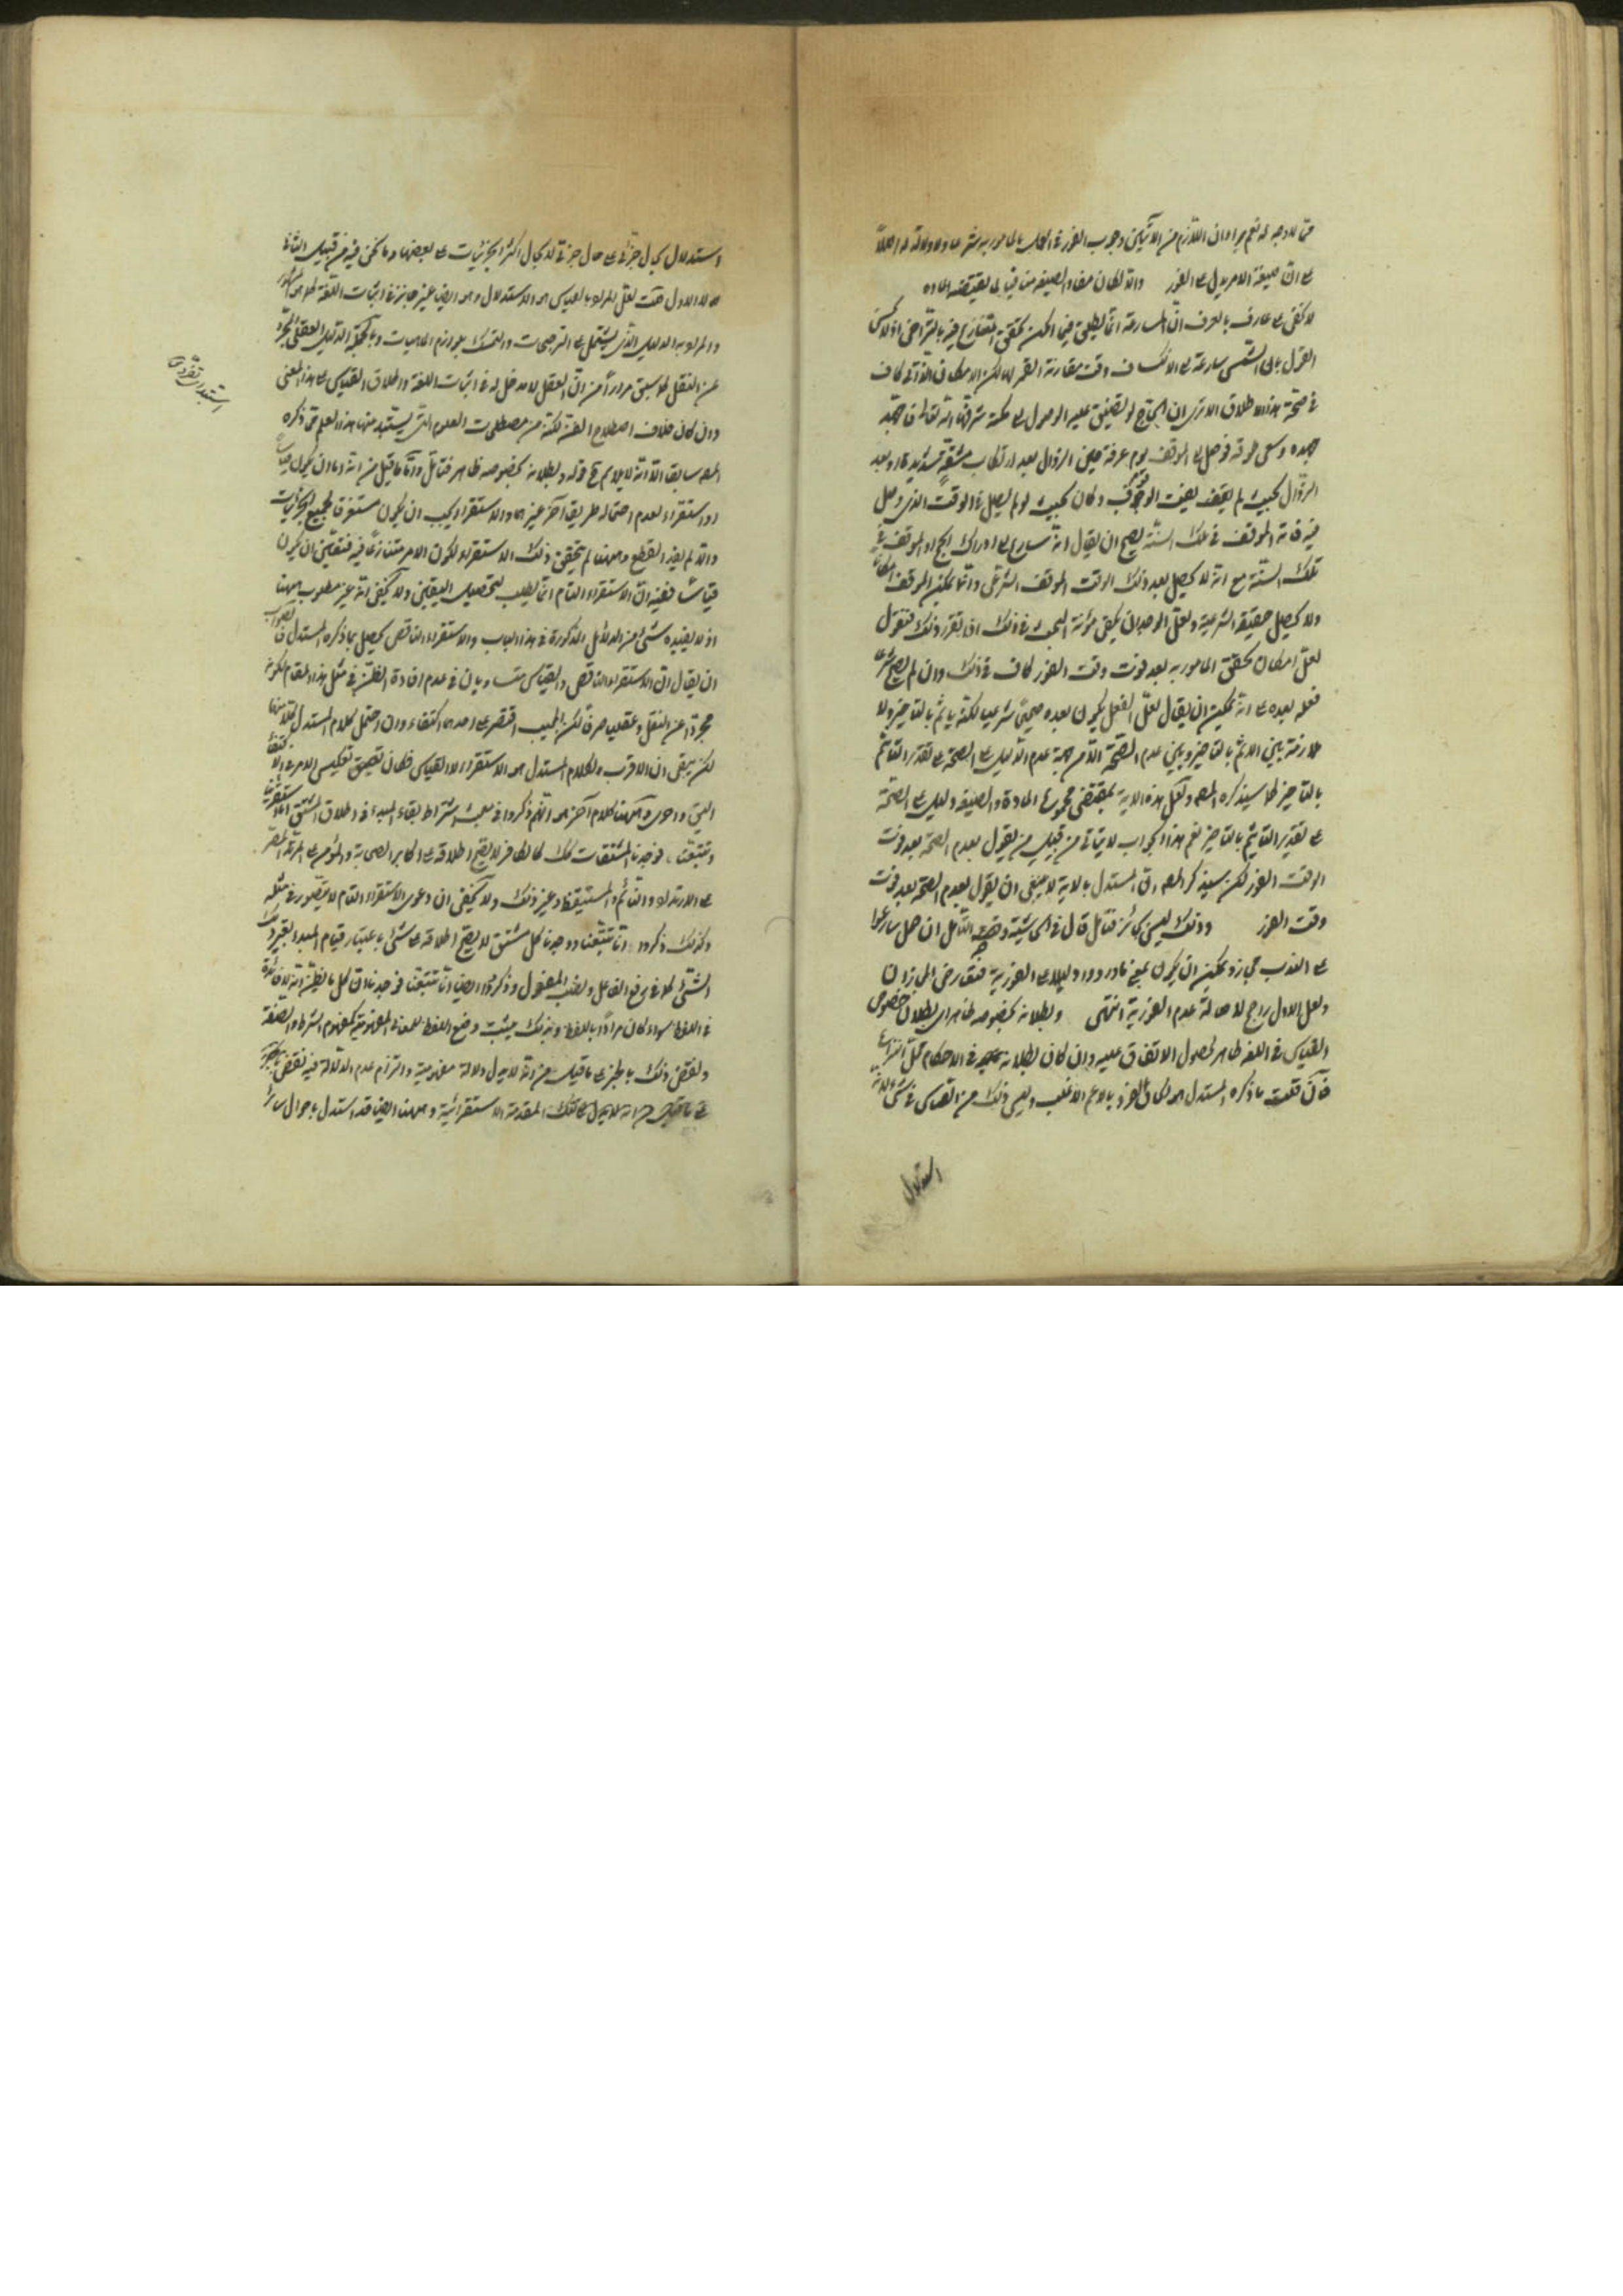 مما لا وجه له نعم يرد ان اللازم من الآيتين وجوب الفور في المأمور به شرعا ولا دلالة له اصلاً
على ان صيغة الامر يدل على الفور والا لكان مفاد الصيغة منافيا لما يقتضيه المادة
لا يخفى على عارف بالعرف ان المسارعة انما يطلق فيما امكن تحقق التنازع فيه بالتراخي اذ لا يحسن
القول بان الشمس سارعت الى الانكساف وقت مقارنة القمر لها لكن الامكان الذاتي كاف
في صحة هذا الاطلاق الا ترى ان الحاج لو تضيق عليه الوصول الى مكة شرفها الله تعالى فاجتهد
جهده وسعى طوقه فوصل الى الموقف يوم عرفة حين الزوال بعد ارتكاب مشقة شديدة وبعد
الزوال بحيث لم يقف يفت الوقوف وكان بحيث لو لم يصل في الوقت الذي وصل
فيه فاته الموقف في تلك السنة يصح ان يقال انه سارع الى ادراك الحج او الموقف في
تلك السنة مع انه لا يحصل بعد ذلك الوقت الموقف الشرعي وانما يمكن الموقف امكانا
ولا يحصل حقيقة الشرعية ولعل الوجدان يكفي مؤنة البحث في ذلك اذا تقرر ذلك فنقول
لعل امكان تحقق المأمور به بعد فوت وقت الفور كاف في ذلك وان لم يصح شرعا
فعله بعده على انه يمكن ان يقال لعل الفعل يكون بعده صحيحا شرعيا لكنه يأثم بالتأخير ولا
ملازمة بين الاثم بالتأخير وبين عدم الصحة الا من جهة عدم الدليل على الصحة على تقدير التأثم
بالتأخير كما سيذكره المصـ ولعل هذه الاية بمقتضى مجموع المادة والصيغة دليل على الصحة
على تقدير التأثم بالتأخير نعم هذا الجواب لا يتأتى من قبل من يقول بعدم الصحة بعد فوت
الوقت الفور لكن سيذكر المصـ ان المستدل بالاية لا ينبغي ان يقول بعدم الصحة بعد فوت
وقت الفور وذلك ليس بجائز فتأمل قال في الحاشية وجه التأمل ان حمل سارعوا
على الندب مجاز ويمكن ان يكون بمعنى بادروا دليلا على الفورية فتعارض المجازان
ولعل الاول راجح لاصالة عدم الفورية انتهى وبطلانه بخصوصه ظاهر اي بطلان خصوص
القياس في اللغة ظاهر لحصول الاتفاق عليه وان كان بطلانه في الاحكام محل النزاع
فان قلت ما ذكره المستدل هو الحاق الفرد بالاعم الاغلب وليس ذلك من القياس في شيء لانه
استدلال
استدلال بحال جزئي على حال جزئي لا بحال اكثر الجزئيات على بعضها وما نحن فيه من قبيل الثاني
لا الاول قلت لعل المراد بالقياس هو الاستدلال وهو ايضا غير جائز في اثبات اللغة كما هو المشهور
والمراد به الدليل الذي يشتمل على الترجيحات والتمسك بلوازم الماهيات وبالجملة الدليل العقلي المجرد
عن النقل لما سبق مرارا من ان العقل لا مدخل له في اثبات اللغة واطلاق القياس على هذا المعنى
وان كان خلاف اصطلاح الفن لكنه من مصطلحات العلوم التي يستمد منها هذا العلم مما ذكره
المصـ سابقا الا انه لا يلائم مع قوله وبطلانه بخصوصه ظاهر فتأمل واما ما قيل من انه اما ان يكون قياسا
او استقراء لعدم احتمال طريق آخر غيرهما والاستقراء يجب ان يكون مستغرقا لجميع الجزئيات
والا لم يفد القطع وههنا لم يتحقق ذلك الاستقراء لكون الامر متنازعا فيه فتعين ان يكون
قياسا ففيه ان الاستقراء التام انما يطلب لتحصيل اليقين ولا يخفى انه غير مطلوب ههنا
اذ لا يفيده شيء من الدلائل المذكورة في هذا الباب والاستقراء الناقص يحصل بما ذكره المستدل فالصواب
ان يقال ان الاستقراء الناقص والقياس متساويان في عدم افادة الظن في مثل هذا المقام لكونه
مجردا عن النقل وعقليا صرفا لكن المجيب اقتصر على احدهما اكتفاء وان احتمل كلام المستدل لكلا منهما
لكن يبقى ان الاقرب الى كلام المستدل هو الاستقراء لا القياس فكان تعكيس الامر في الاكتفاء
اليق واحرى وههنا كلام آخر هو انهم ذكروا في مبحث اشتراط بقاء المبدأ في اطلاق المشتق انا استقرينا
وتتبعنا فوجدنا المشتقات كالكافر لا يصح اطلاقه على اكابر الصحابة والمؤمن على المرتد المصر
على الارتداد والنائم والمستيقظ وغير ذلك ولا يخفى ان دعوى الاستقراء التام لا يتصور في مثله
وكذلك ذكروا انا تتبعنا ووجدنا كل مشتق لا يصح اطلاقه على شيء باعتبار قيام المبدأ بغير ذلك
الشيء كما في رفع الفاعل ونصب المفعول وذكروا ايضا انا تتبعنا فوجدنا ان كل ما يظن انه لا فائدة
في اللفظ سواه كان مرادا باللفظ وبذلك يثبت وضع اللفظ للمعاني المفهومية كمفهوم الشرط والصفة
ولنقض ذلك بالجزء على ما قيل من انه لا يدل دلالة مفهومية والتزام عدم الدلالة فيه نقض
على تلك المقدمة الاستقرائية وههنا ايضا قد استدل باحوال سائر